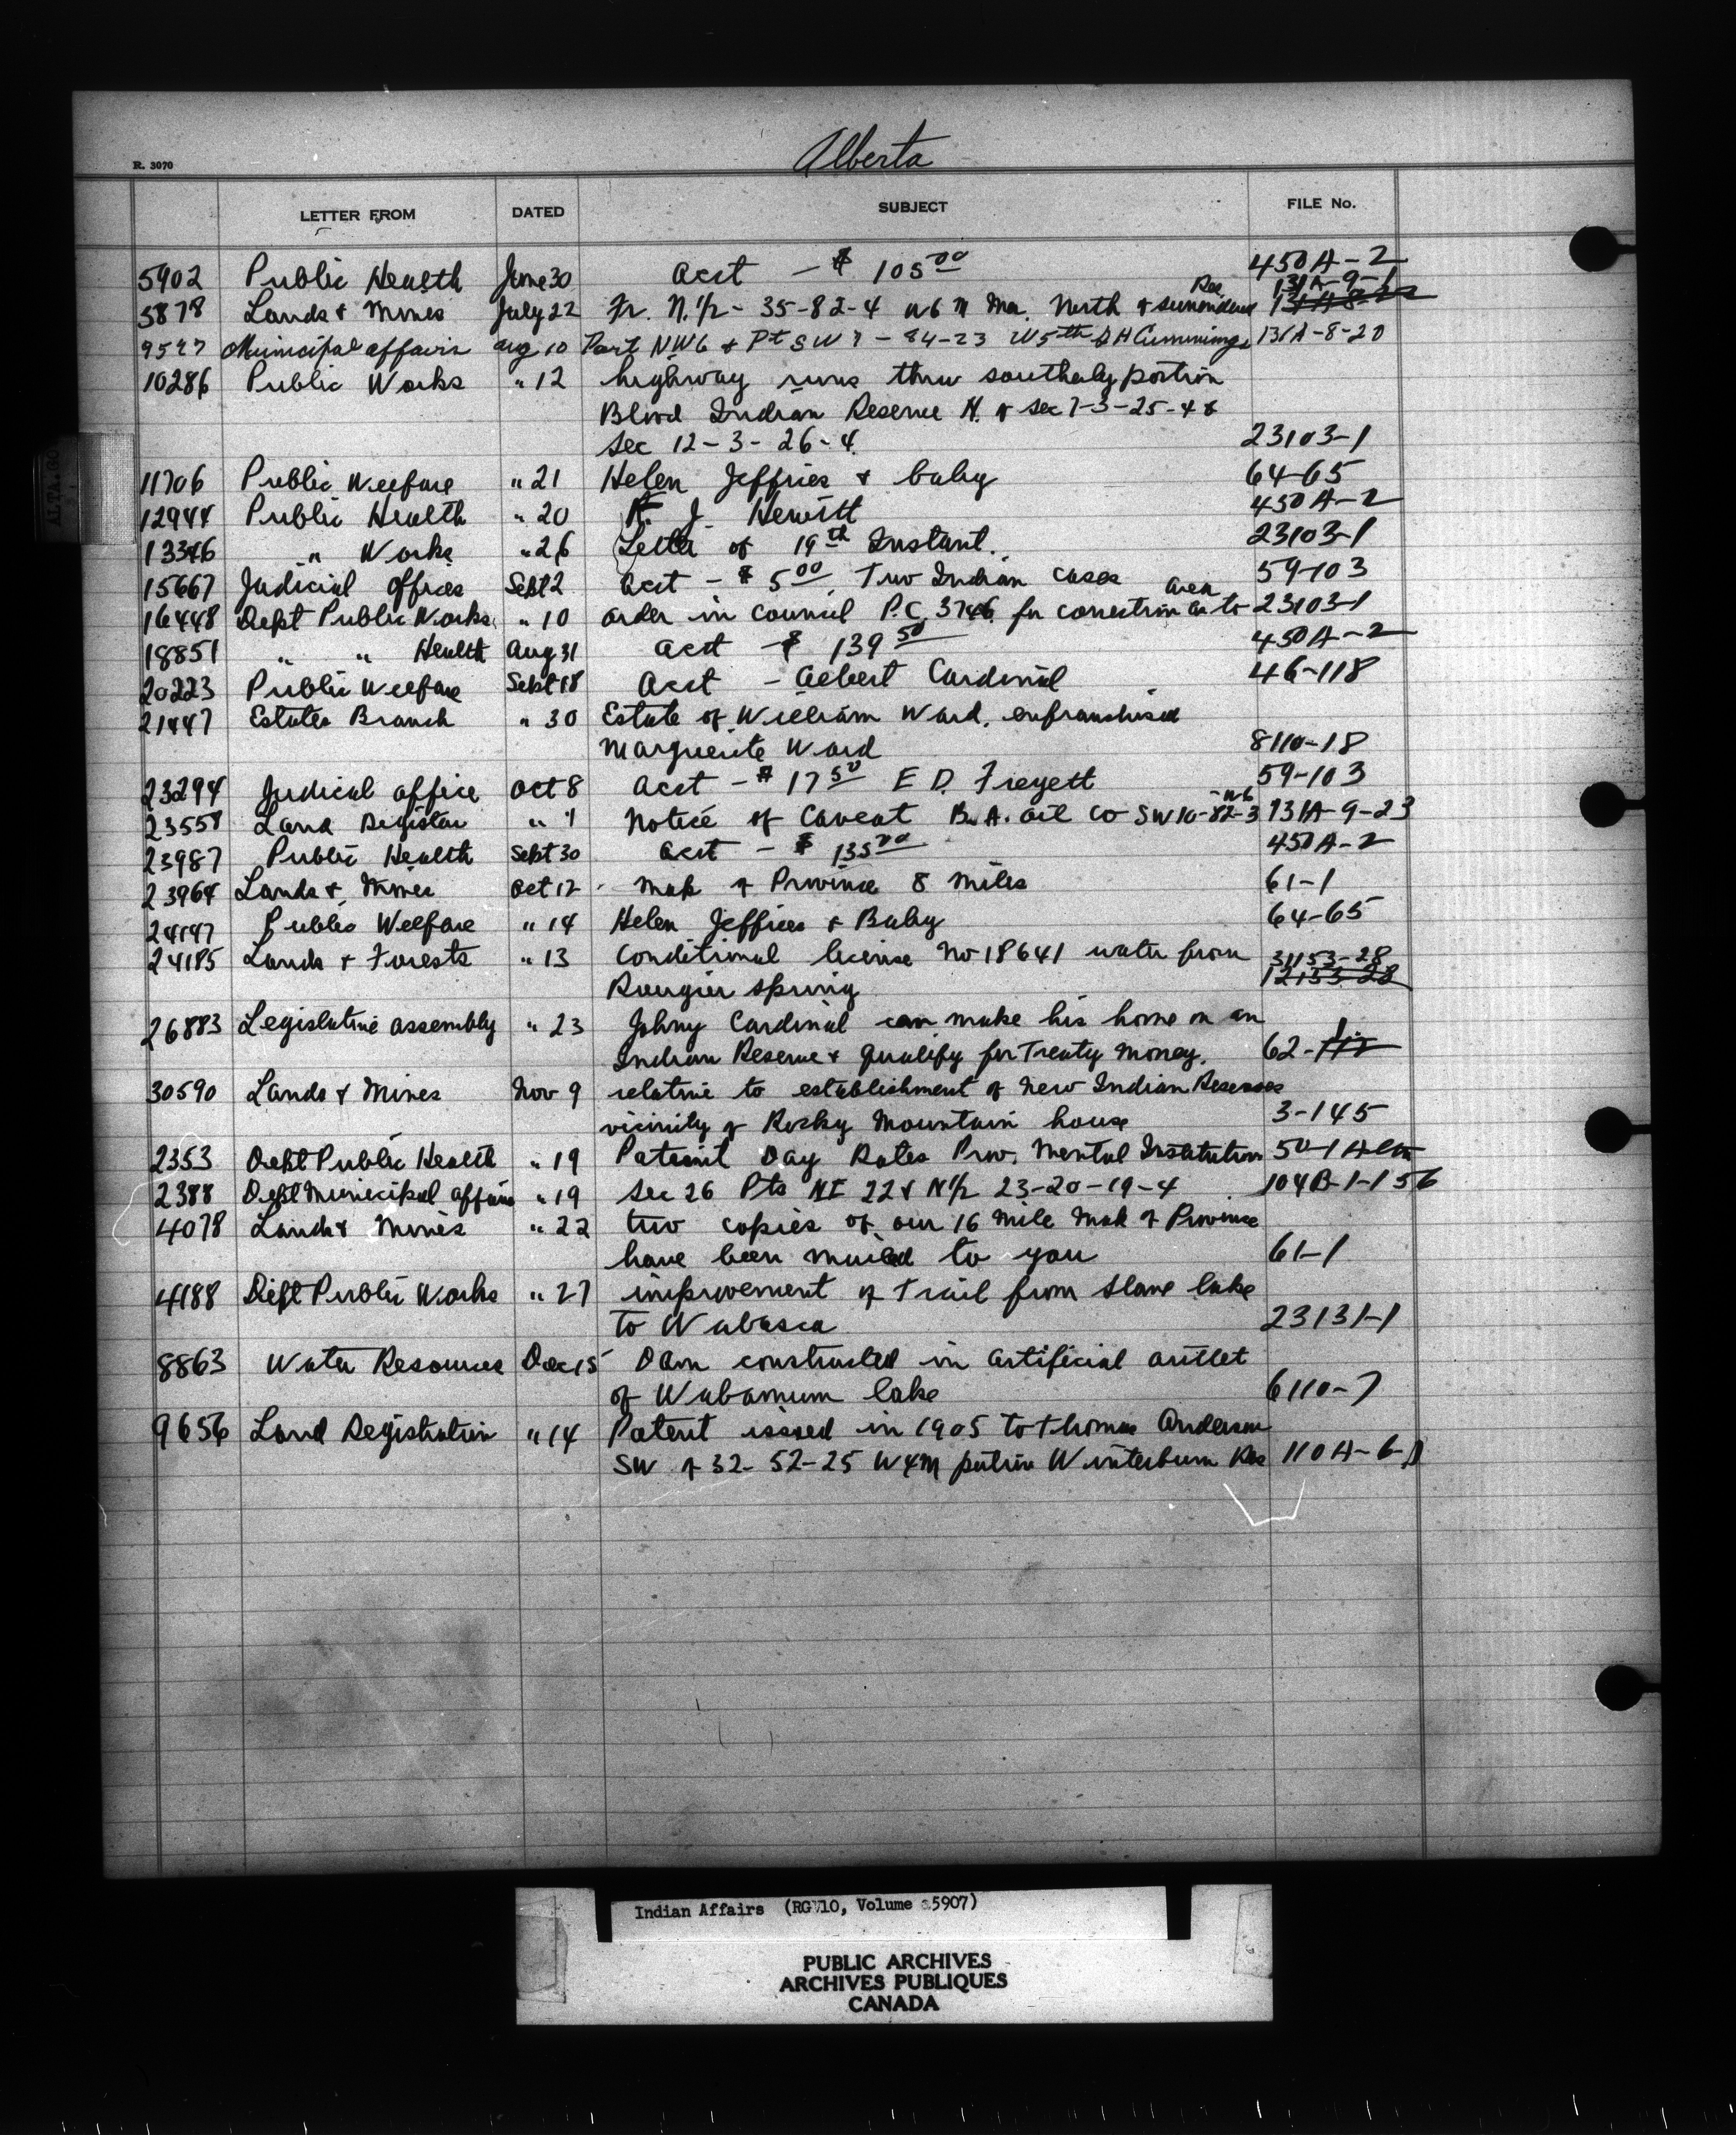 Alberta
R. 3070
LETTER FROM DATED SUBJECT FILE No.
5902 Public Health June 30 acct - $ 105 00 450A-2
Res 131A-9-1
5878 Lands & Mines July 22 Fr. N. 1/2 - 35-82-4 W6 M North of surrendered
Municipal affairs aug 10 Part NW6 & Pt SW 7 - 84-23 W5th Cummings 131A-8-20
10286 Public Works " 12 highway runs thru southerly portion
Blood Indian Reserve N. of Sec 7-3-25-4 &
Sec 12-3-26-4. 23103-1
11706 Public Welfare " 21 Helen Jeffries & baby 64-65
12944 Public Health " 20 J. Hewitt 450A-2
13346 " Works " 26 Letter of 19th Instant. 23103-1
15667 Judicial Offices Sept 2 acct - $ 5 00 Two Indian Cases 59-103
area
16448 Dept Public Works " 10 order in council P.C. 3746 for correction as to 23103-1
18851 " " Health Aug 31 acct - $ 139 50 450A-2
20223 Public Welfare Sept 18 acct - Albert Cardinal 46-118
21447 Estates Branch " 30 Estate of William Ward. enfranchised
Marguerite Ward 8110-18
23294 Judical office Oct 8 acct - $ 17 50 E D. Freyett 59-103
- W6
23558 Land Registrar " 7 Notice of Caveat B.A. oil Co SW10-82-3 131A-9-23
23987 Public Health Sept 30 acct - $ 135 00 450A-2
23964 Lands & Mines Oct 12 map of Province 8 miles 61-1
24147 Public Welfare " 14 Helen Jeffries & Baby 64-65
24185 Lands & Forests " 13 Conditional license No 18641 water from 31153-28
Rougier spring 12153-28
26883 Legislative assembly " 23 Johny Cardinal can make his home on an
Indian Reserve & qualify for Treaty Money. 62-
30590 Lands & Mines Nov 9 relative to establishment of New Indian Reserves
vicinity of Rocky Mountain house 3-145
2353 Dept Public Health " 19 Patient Day Rates Prov. Mental Institution 50-1
2388 Dept Municipal affairs " 19 Sec 26 Pts NE 22 & N1/2 23-20-19-4 104B-1-156
4078 Lands & Mines " 22 two copies of our 16 mile map of Province
have been mailed to you 61-1
4188 Dept Public Works " 27 improvement of Trail from Slave lake
to Wabasca 23131-1
8863 Water Resources Dec 15 Dam constructed in artificial outlet
of Wabamum lake 6110-7
9656 Land Registration " 14 Patent issued in 1905 to Thomas Anderson
SW of 32-52-25 W4M Winterburn Res 110A-6-
Indian Affairs (RG 10, Volume 5907)
PUBLIC ARCHIVES
ARCHIVES PUBLIQUES
CANADA